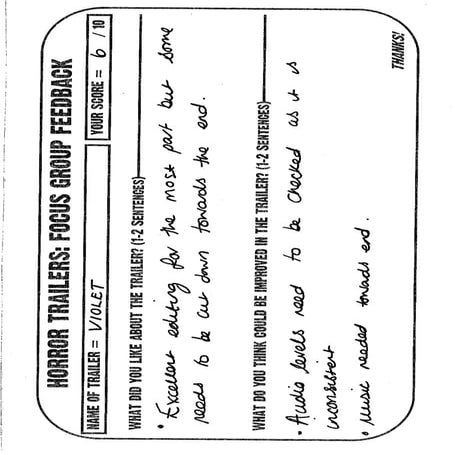 HORROR TRAILERS: FOCUS GROUP FEEDBACK
NAME OF TRAILER = VIOLET
YOUR SCORE = 6 /10
WHAT DID YOU LIKE ABOUT THE TRAILER? (1-2 SENTENCES)
• Excellent editing for the most part but some
needs to be cut down towards the end.
WHAT DO YOU THINK COULD BE IMPROVED IN THE TRAILER? (1-2 SENTENCES)
• Audio levels need to be checked as it is
inconsistent
• Music needed towards end.
THANKS!